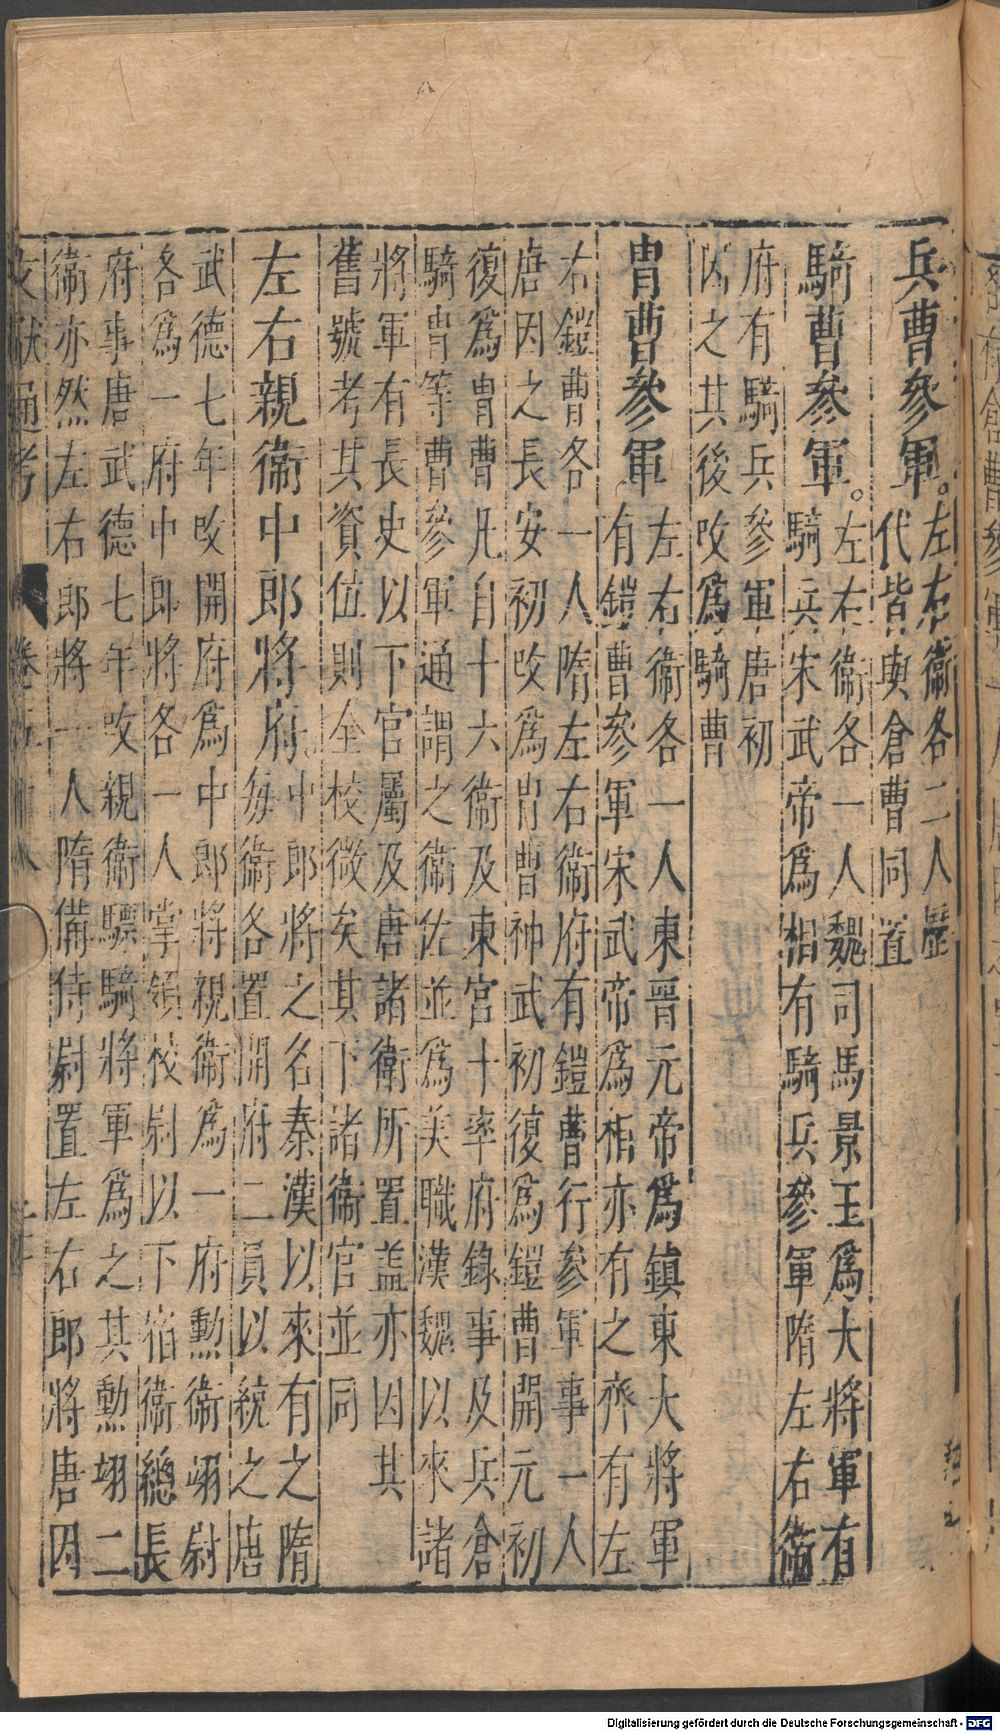 兵曹參軍。左右衞各二人歷
代皆與倉曹同置
騎曹參軍。左右衞各一人魏司馬景王爲大將軍有
騎兵宋武帝爲相有騎兵參軍隋左右衞
府有騎兵參軍唐初
因之其後攺爲騎曹
胄曹參軍左右衞各一人東晉元帝爲鎮東大將軍
有鎧曹參軍宋武帝爲相亦有之齊有左
右鎧曹各一人隋左右衞府有鎧曹行參軍事一人
唐因之長安初攺爲胄曹神武初復爲鎧曹開元初
復爲胄曹凡自十六衞及東宮十率府錄事及兵倉
騎胄等曹參軍通謂之衞佐並爲美職漢魏以來諸
將軍有長史以下官屬及唐諸衞所置盖亦因其
舊號考其資位則全校微矣其下諸衞官並同
左右親衞中郎將府中郎將之名秦漢以來有之隋
每衞各置開府二員以統之唐
武德七年攺開府爲中郎將親衞爲一府勳衞翊尉
各爲一府中郎將各一人掌領校尉以下宿衞總長
府事唐武德七年攺親衞驃騎將軍爲之其勳翊二
衞亦然左右郎將一人隋備侍尉置左右郎將唐因
文獻通考 卷五十八
Digitalisierung gefördert durch die Deutsche Forschungsgemeinschaft - DFG